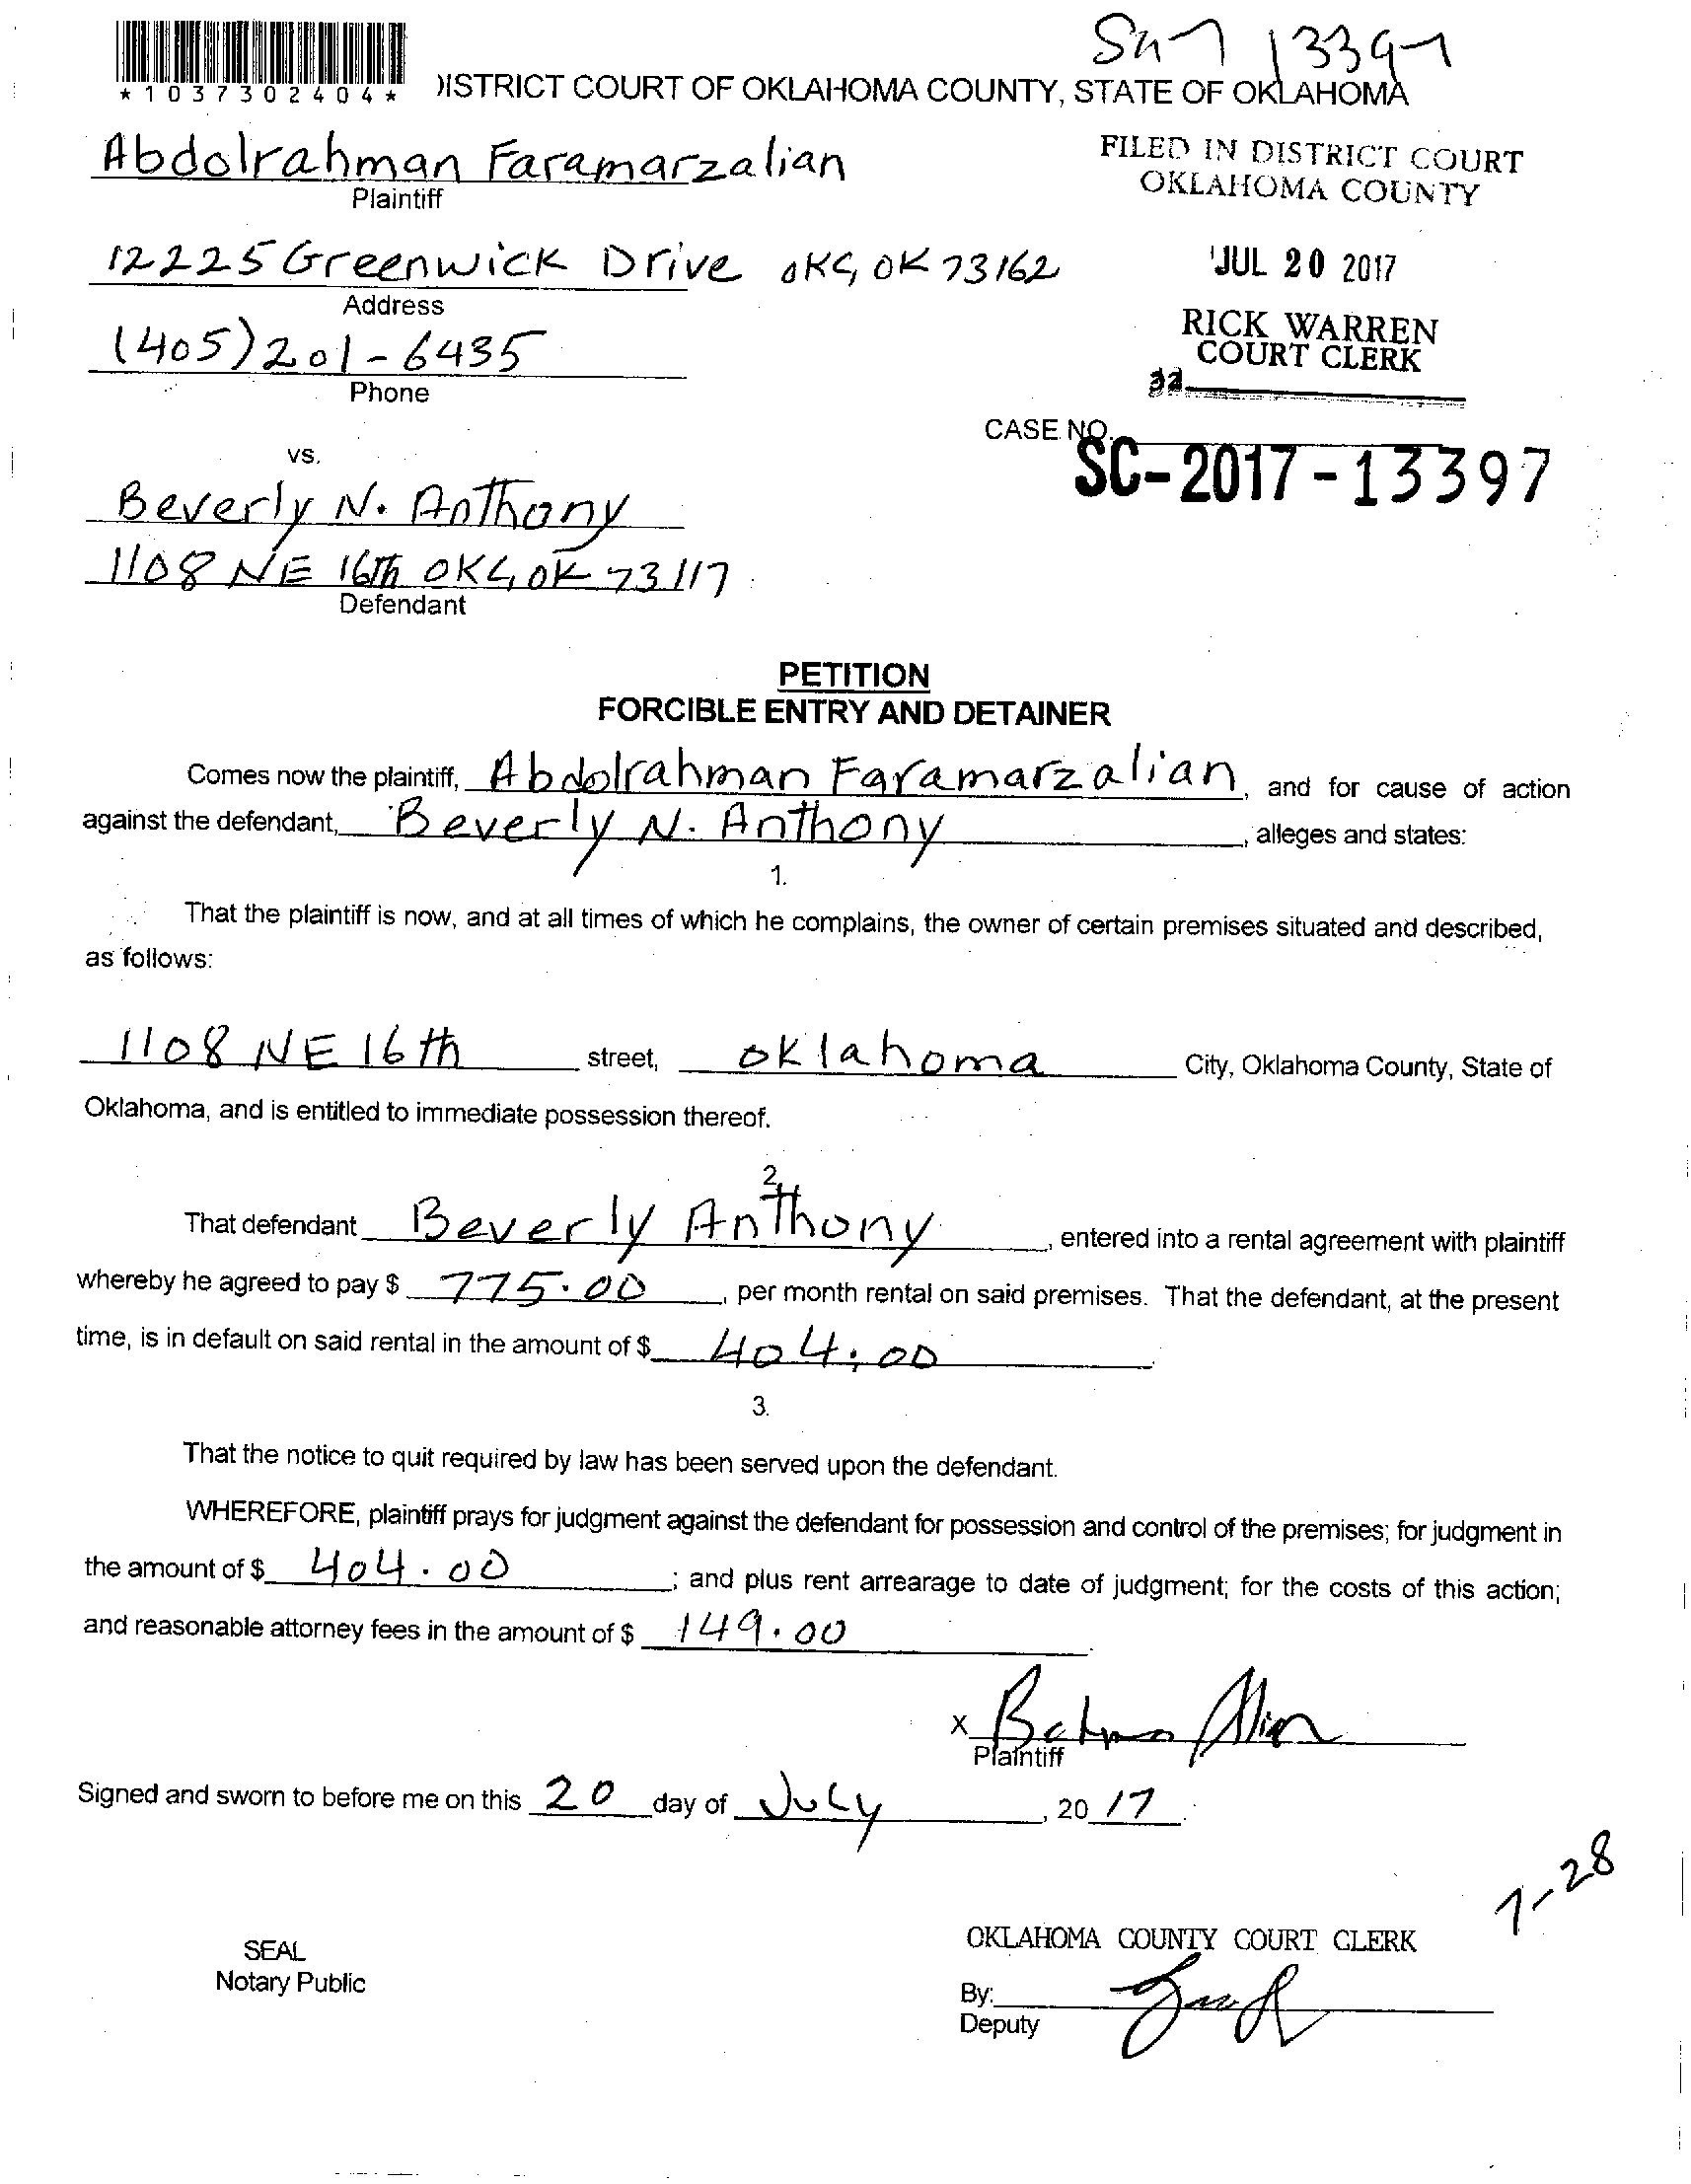 13397
*1037302404*
DISTRICT COURT OF OKLAHOMA COUNTY, STATE OF OKLAHOMA
Abdolrahman Faramarzalian
Plaintiff
FILED IN DISTRICT COURT
OKLAHOMA COUNTY
12225 Greenwick Drive OKC, OK 73162
Address
JUL 20 2017
(405) 201-6435
Phone
RICK WARREN
COURT CLERK
32
CASE NO.
SC-2017-13397
vs.
Beverly N. Anthony
1108 NE 16th OKC, OK 73117
Defendant
PETITION
FORCIBLE ENTRY AND DETAINER
Comes now the plaintiff, Abdolrahman Faramarzalian, and for cause of action
against the defendant, Beverly N. Anthony, alleges and states:
1.
That the plaintiff is now, and at all times of which he complains, the owner of certain premises situated and described,
as follows:
1108 NE 16th street, oklahoma City, Oklahoma County, State of
Oklahoma, and is entitled to immediate possession thereof.
2.
That defendant Beverly Anthony, entered into a rental agreement with plaintiff
whereby he agreed to pay $ 775.00, per month rental on said premises. That the defendant, at the present
time, is in default on said rental in the amount of $ 404.00
3.
That the notice to quit required by law has been served upon the defendant.
WHEREFORE, plaintiff prays for judgment against the defendant for possession and control of the premises; for judgment in
the amount of $ 404.00; and plus rent arrearage to date of judgment; for the costs of this action;
and reasonable attorney fees in the amount of $ 149.00
x
Plaintiff
Signed and sworn to before me on this 20 day of July, 20 17
7-28
SEAL
Notary Public
OKLAHOMA COUNTY COURT CLERK
By:
Deputy